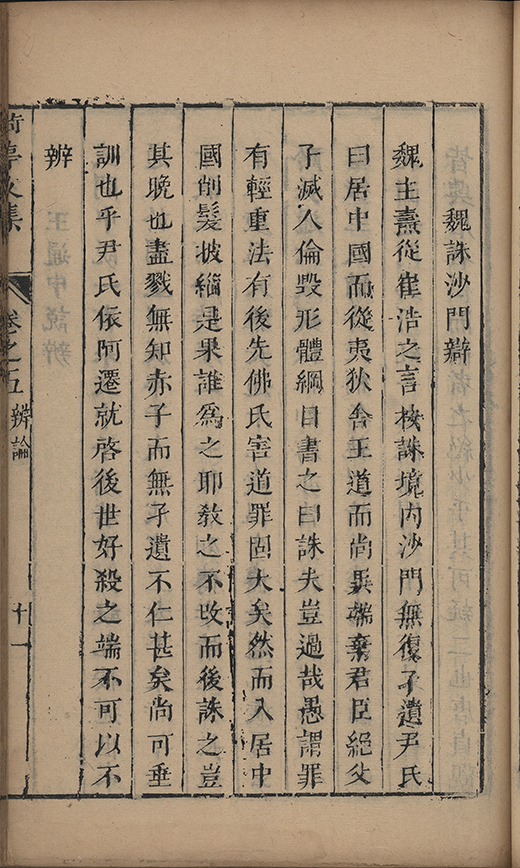 魏誅沙門辯
魏主燾從崔浩之言校誅境內沙門無復孑遺尹氏
曰居中國而從夷狄舍王道而尚異端棄君臣絕父
子滅人倫毀形體綱目書之曰誅夫豈過哉愚謂罪
有輕重法有後先佛氏害道罪固大矣然而入居中
國削髮披緇是果誰為之耶教之不改而後誅之豈
其晚也盡戮無知赤子而無孑遺不仁甚矣尚可垂
訓也乎尹氏依阿遷就啓後世好殺之端不可以不
辨
文集 卷之五 辨論 十一